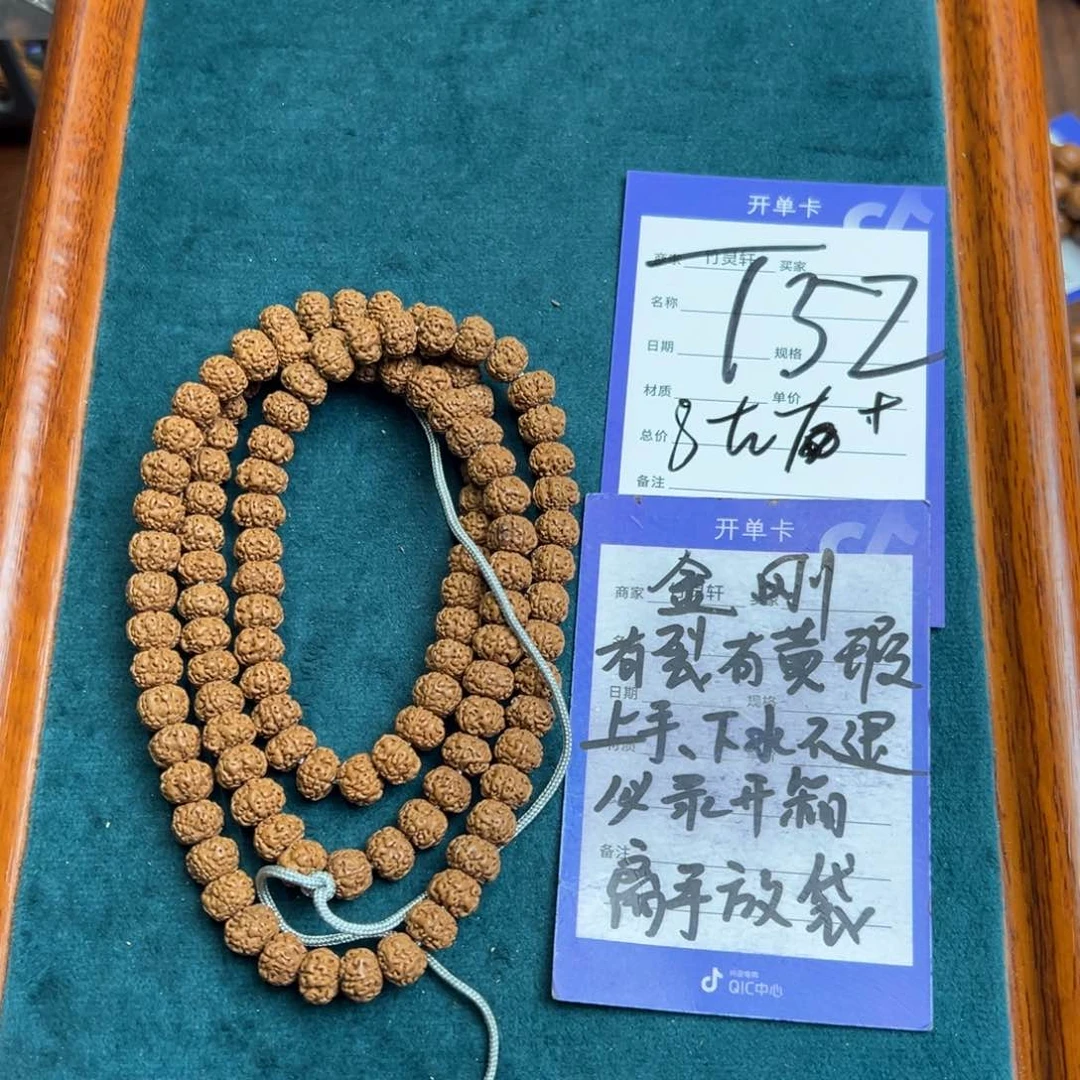 开单卡
商家 竹灵轩 买家
T52
名称
日期 规格
材质 单价
总价 8
备注
开单卡
金刚
商家 轩
有裂有黄瑕
日期 规格
上手、下水不退
必录开箱
备注
离手放袋
QIC中心